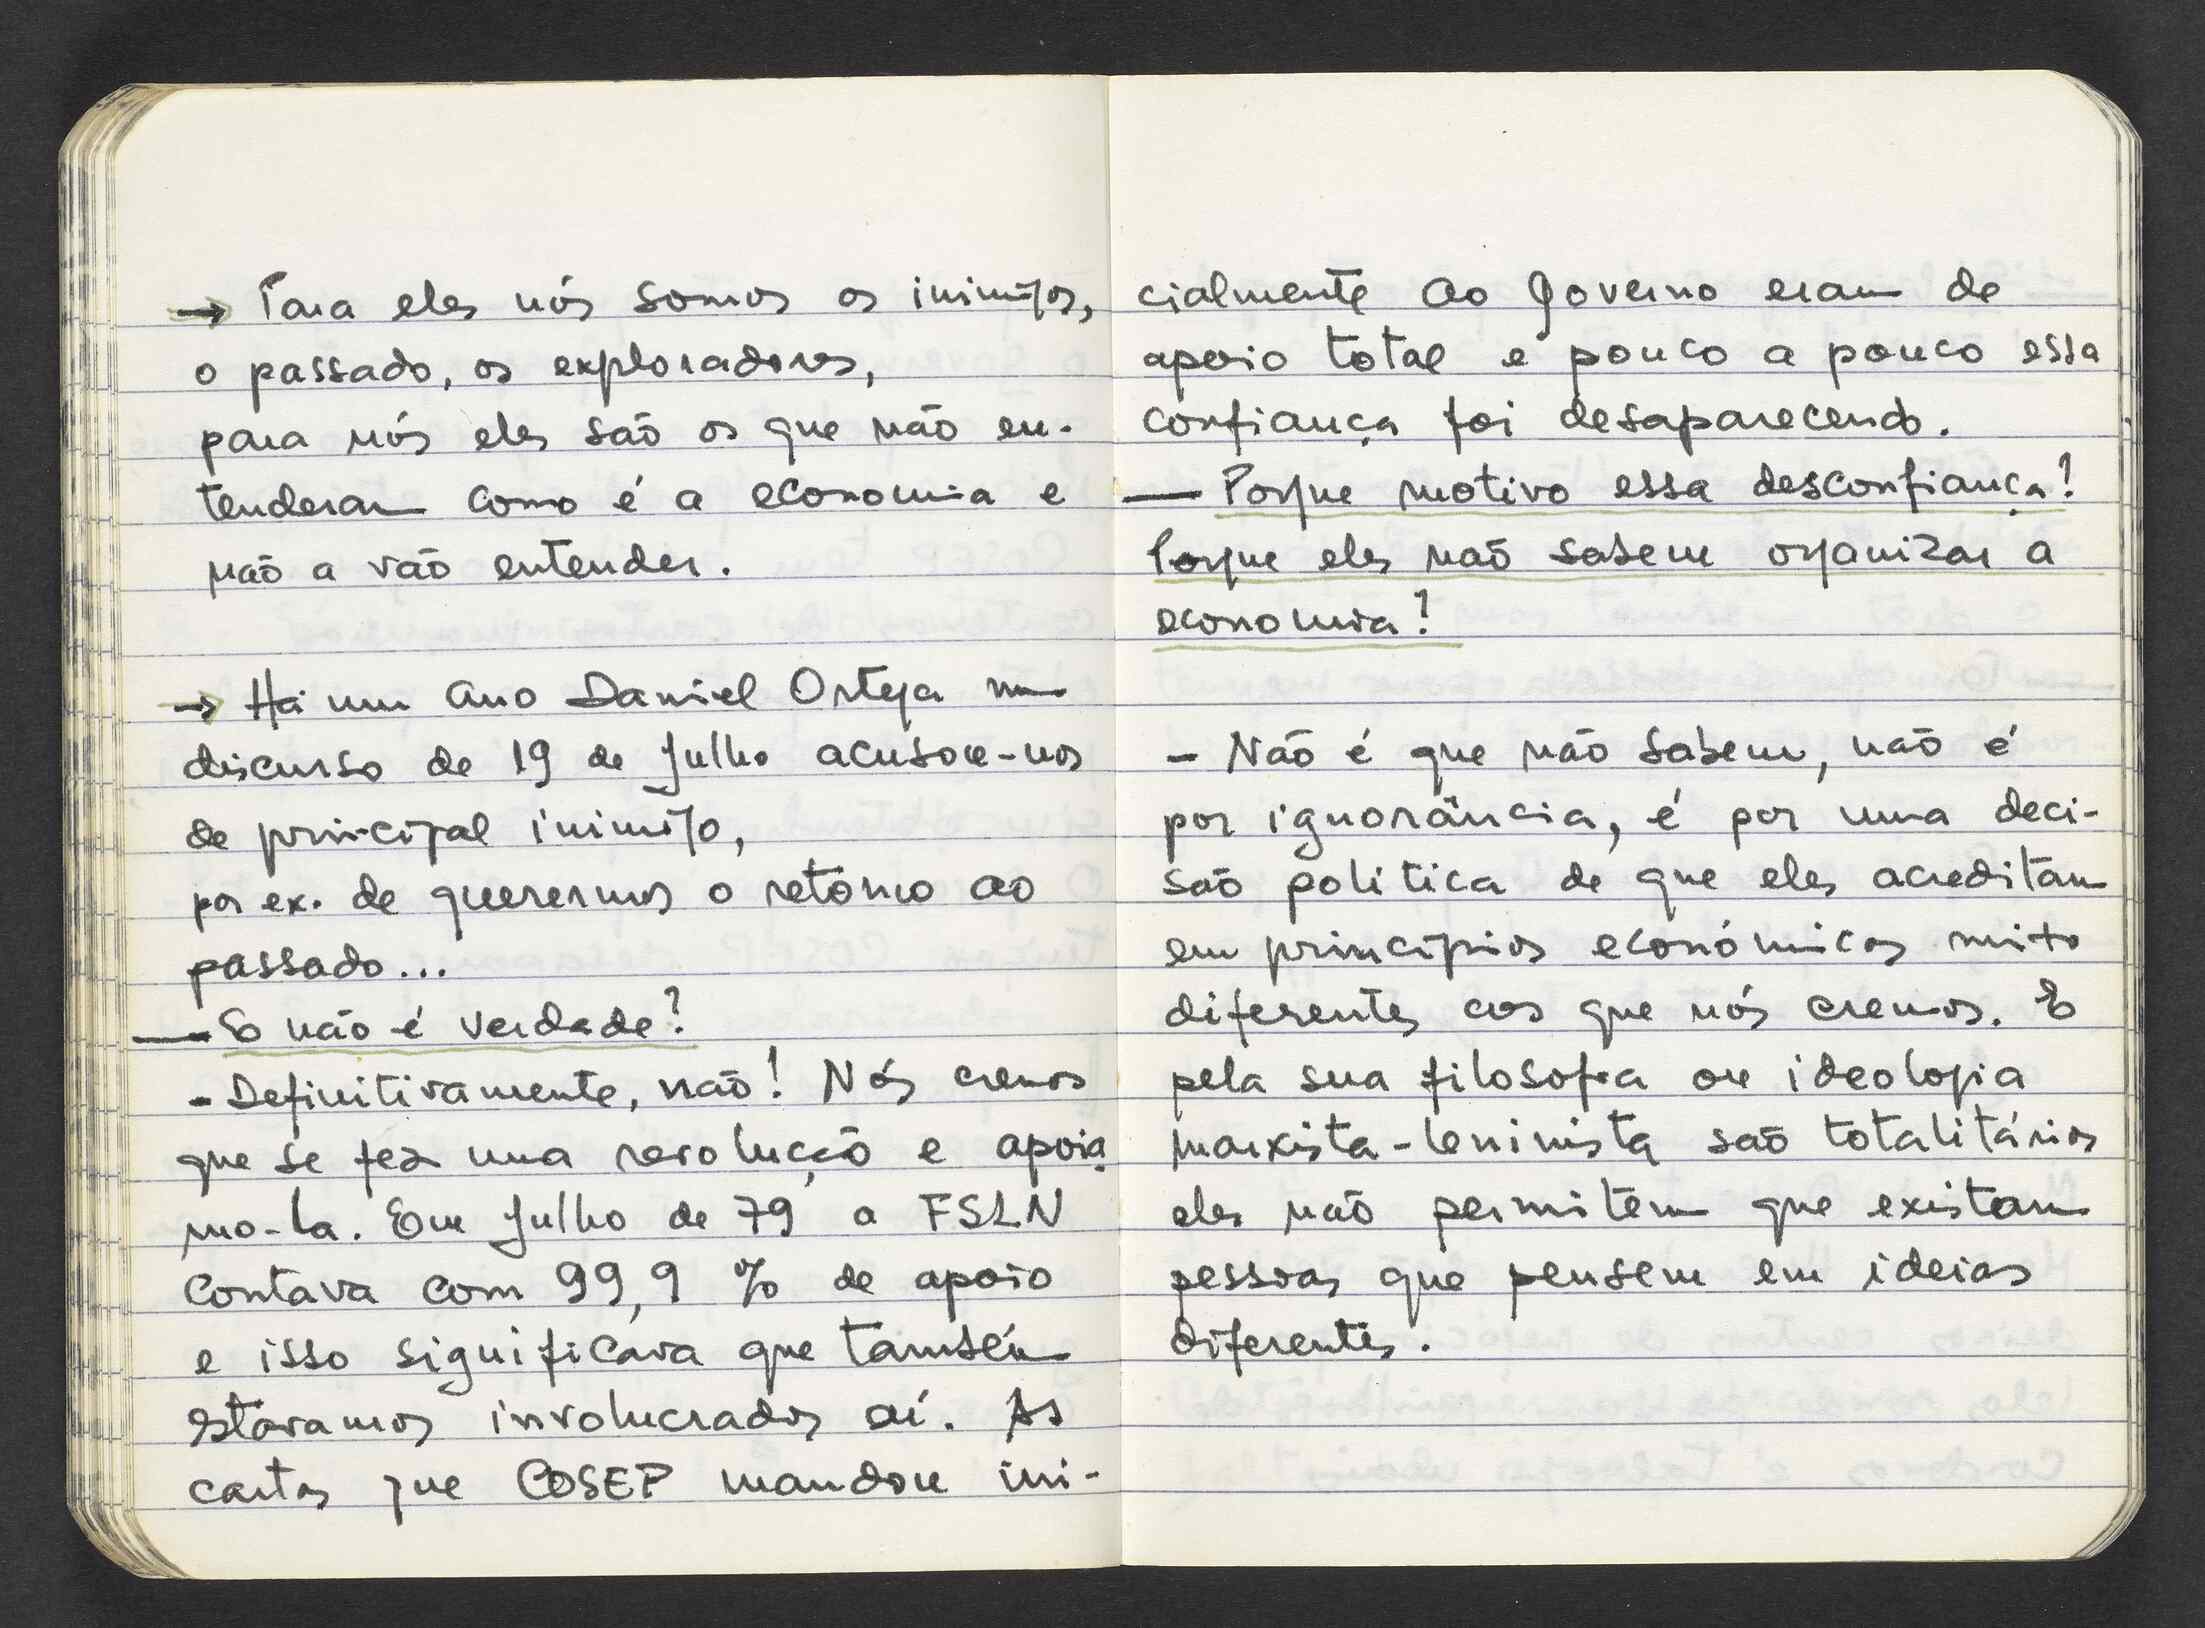 → Para eles nós somos os inimigos,
o passado, os exploradores,
para nós eles são os que não en-
tenderam como é a economia e
não a vão entender.
→ Há um ano Daniel Ortega num
discurso de 19 de Julho acusou-nos
de principal inimigo,
por ex. de querermos o retorno ao
passado...
— E não é verdade?
- Definitivamente, não! Nós cremos
que se fez uma revolução e apoia
mo-la. Em Julho de 79 a FSLN
contava com 99,9 % de apoio
e isso significava que também
estávamos involucrados aí. As
cartas que COSEP mandou ini-
cialmente ao Governo eram de
apoio total e pouco a pouco essa
confiança foi desaparecendo.
— Porque motivo essa desconfiança?
Porque eles não sabem organizar a
economia?
- Não é que não sabem, não é
por ignorância, é por uma deci-
são politica de que eles acreditam
em princípios económicos mito
diferentes aos que nós cremos. E
pela sua filosofia ou ideologia
marxista-leninista são totalitários
eles não permitem que existam
pessoas que pensem em ideias
diferentes.